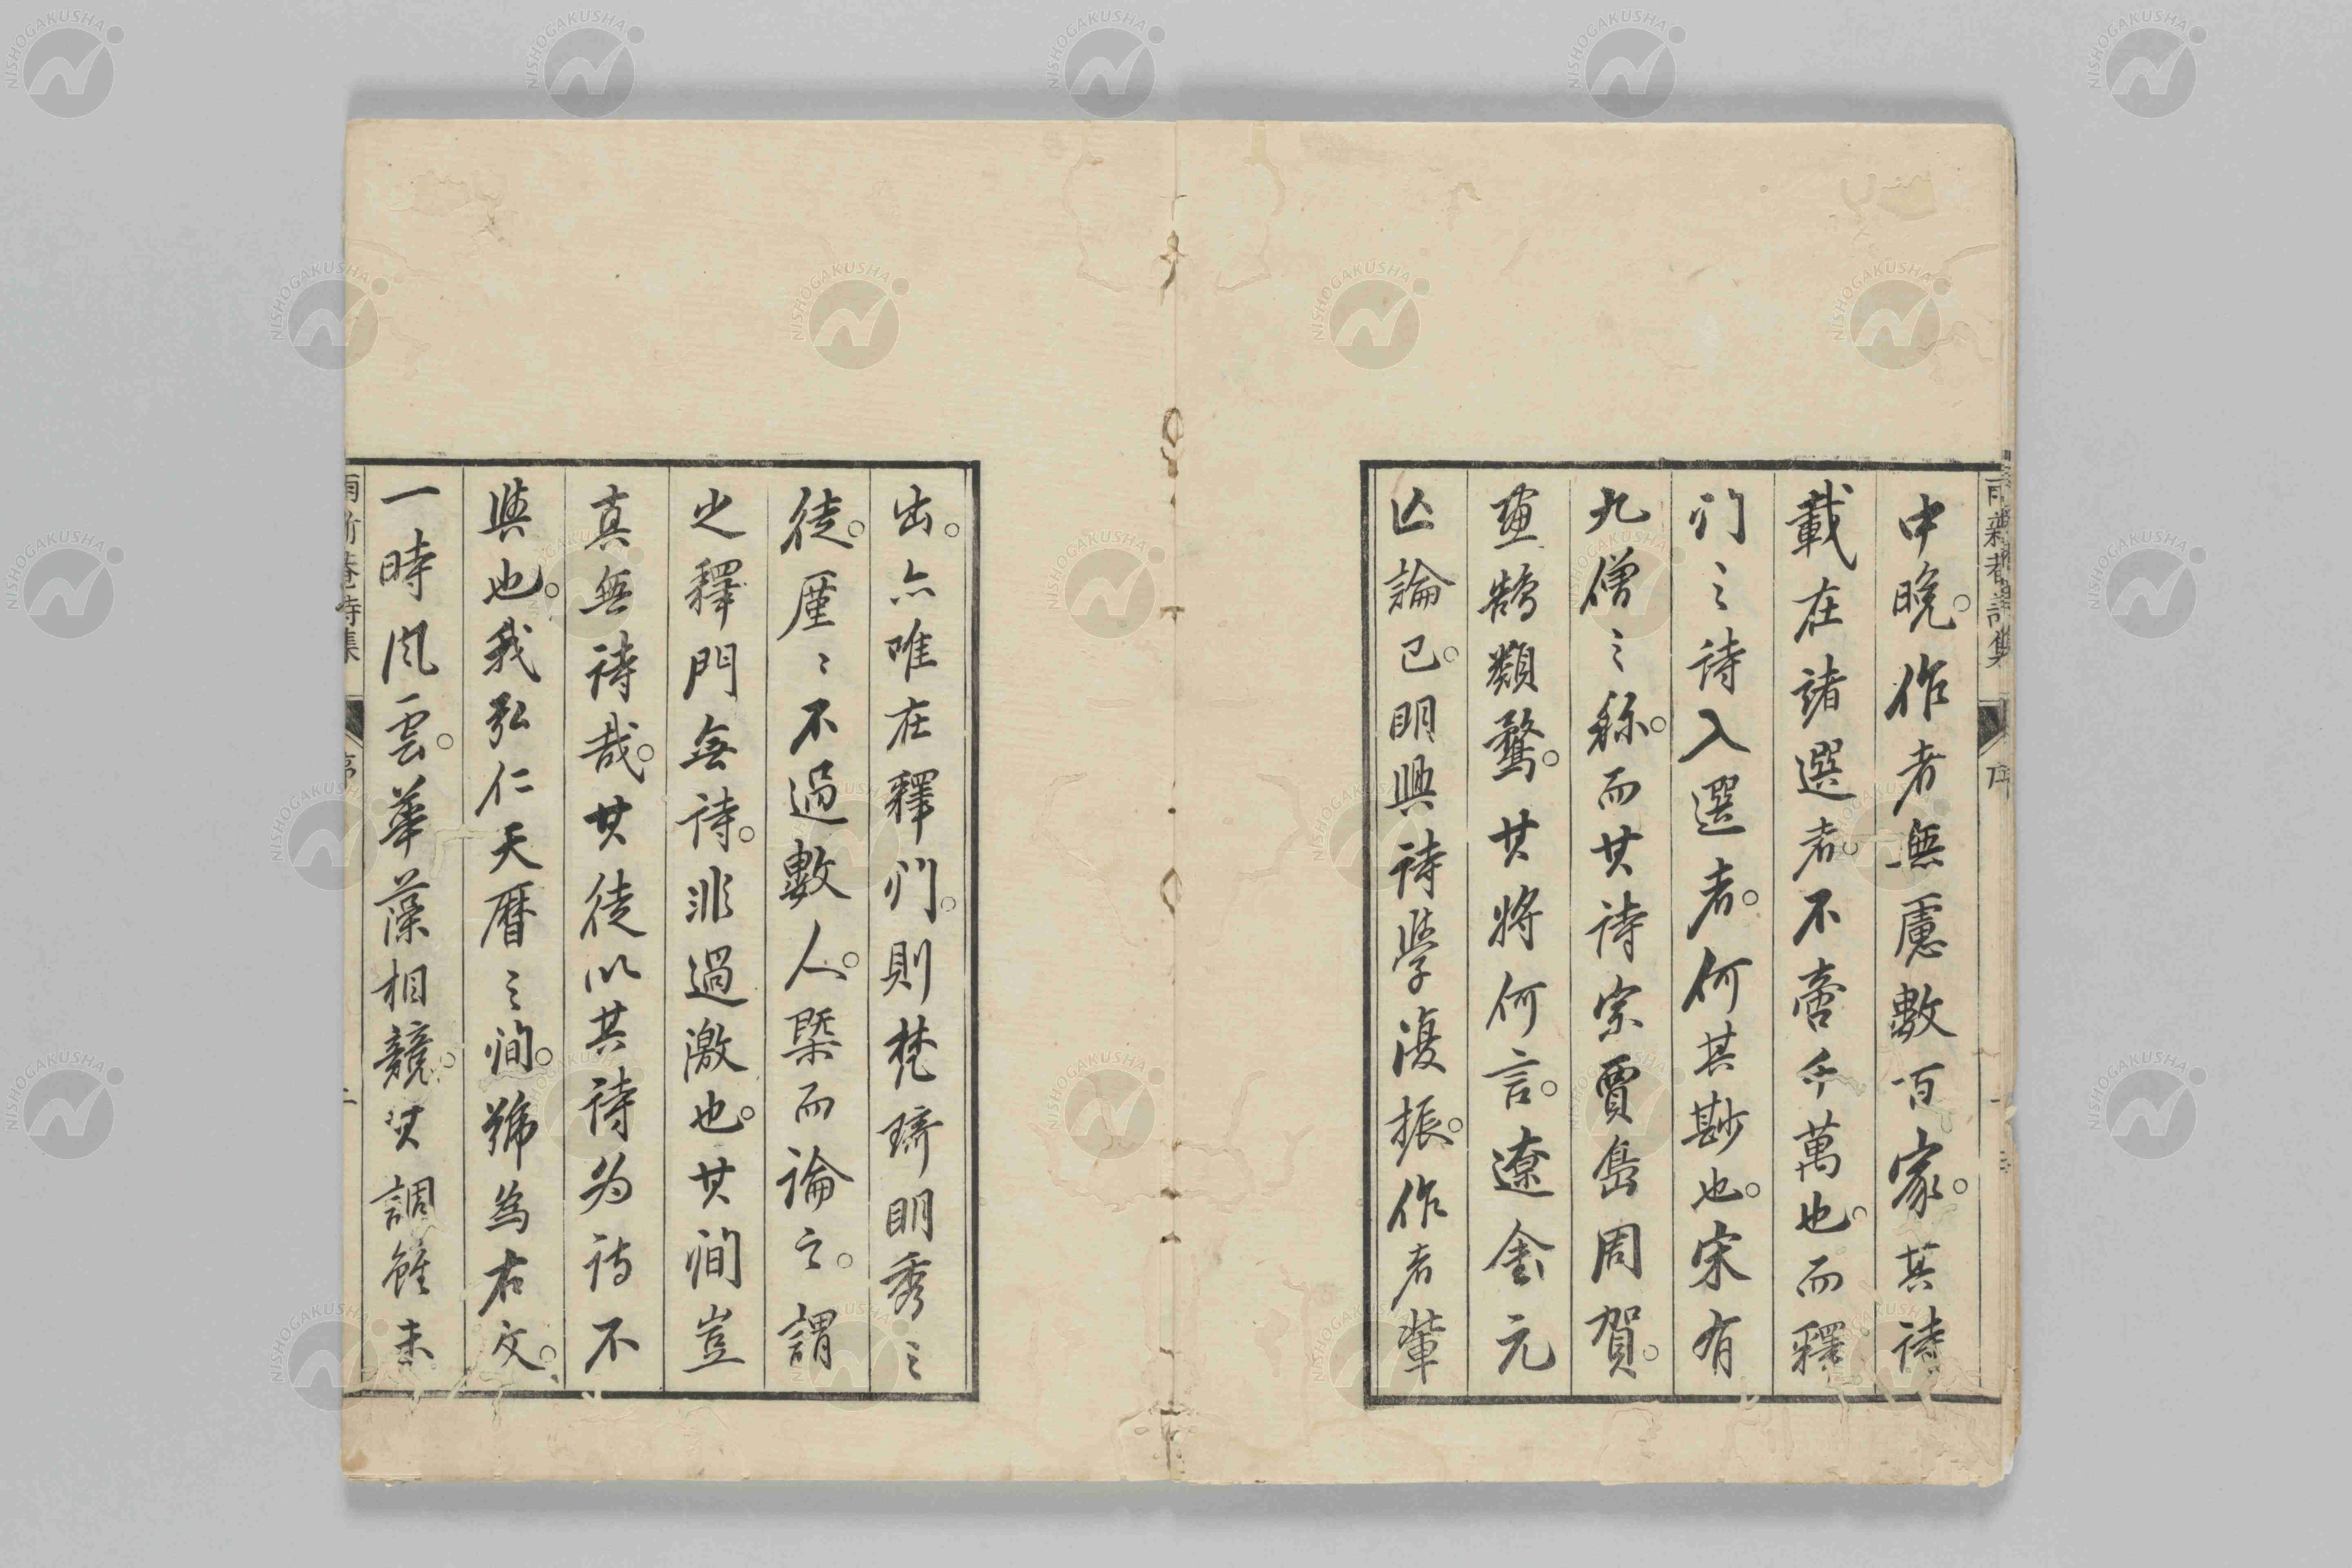 中晚。作者無慮數百家。其詩
載在諸選者。不啻千萬也。而釋
門之詩入選者。何其尠也。宋有
九僧之稱。而其詩宗賈島周賀。
畫鵠類鶩。其將何言。遼金元
亾論已。明興詩學復振。作者輩
出。亦唯在釋門。則梵琦明秀之
徒。厪々不過數人。槩而論之。謂
之釋門無詩。非過激也。其間豈
真無詩哉。其徒以其詩為詩不
與也。我弘仁天曆之間。號為右文。
一時風雲。華藻相競。其調雖未
序
NISHOGAKUSHA